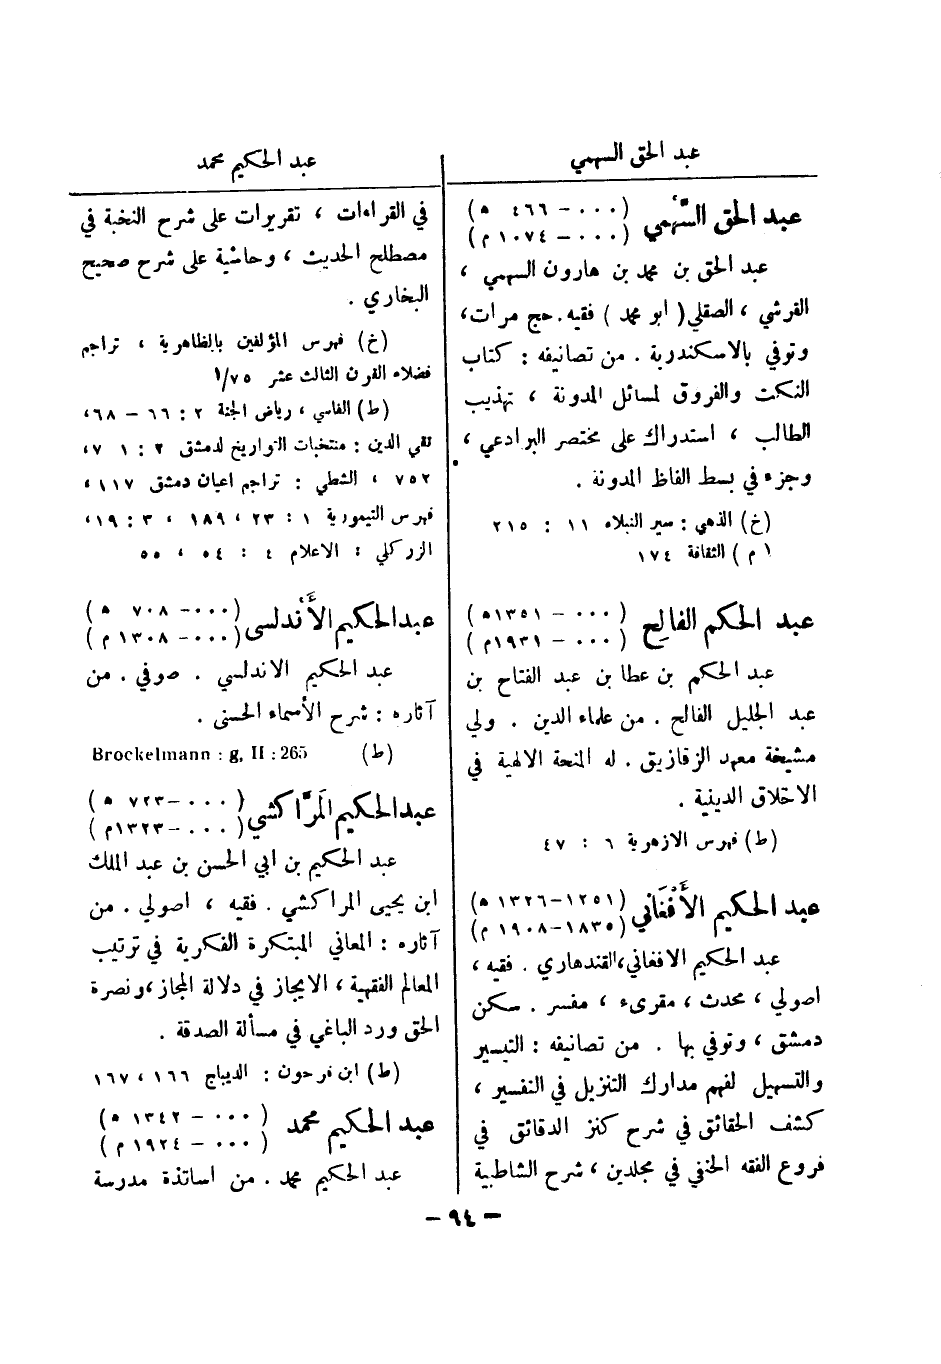 عبد الحق السهمي
عبد الحق السَّهْمي (٠٠٠ - ٤٦٦ ه)
(٠٠٠ - ١٠٧٤ م)
عبد الحق بن محمد بن هارون السهمي ،
القرشي ، الصقلي ( ابو محمد ) فقيه . حج مرات ،
وتوفي بالاسكندرية . من تصانيفه : كتاب
النكت والفروق لمسائل المدونة ، تهذيب
الطالب ، استدراك على مختصر البرادعي ،
وجزء في بسط الفاظ المدونة .
(خ) الذهبي : سير النبلاء ١١ : ٢١٥
(م) الثقافة ١٧٤
عبد الحكم الفالح (٠٠٠ - ١٣٥١ه)
(٠٠٠ - ١٩٣١م)
عبد الحكم بن عطا بن عبد الفتاح بن
عبد الجليل الفالح . من علماء الدين . ولي
مشيخة معهد الزقازيق . له المنحة الالهية في
الاخلاق الدينية .
(ط) فهرس الازهرية ٦ : ٤٧
عبد الحكيم الأَفْغَاني (١٢٥١-١٣٢٦ ه)
(١٨٣٥-١٩٠٨ م)
عبد الحكيم الافغاني ، القندهاري . فقيه ،
اصولي ، محدث ، مقرىء ، مفسر . سكن
دمشق ، وتوفي بها . من تصانيفه : التيسير
والتسهيل لفهم مدارك التنزيل في التفسير ،
كشف الحقائق في شرح كنز الدقائق في
فروع الفقه الحنفي في مجلدين ، شرح الشاطبية
عبد الحكيم محمد
في القراءات ، تقريرات على شرح النخبة في
مصطلح الحديث ، وحاشية على شرح صحيح
البخاري .
(خ) فهرس المؤلفين بالظاهرية ، تراجم
فضلاء القرن الثالث عشر ١/٧٥
(ط) الفاسي ، رياض الجنة ٢ : ٦٦ - ٦٨ ،
تقي الدين : منتخبات التواريخ لدمشق ٢ : ٧ ١ ،
٧٥٢ ، الشطي : تراجم اعيان دمشق ١١٧ ،
فهرس التيمورية ١ : ٢٣ ، ١٨٩ ، ٣ : ١٩ ،
الزركلي : الاعلام ٤ : ٥٤ ، ٥٥
عبد الحكيم الأَنْدلسي (٠٠٠ - ٧٠٨ ه)
(٠٠٠ - ١٣٠٨ م)
عبد الحكيم الاندلسي . صوفي . من
آثاره : شرح الأسماء الحسنى .
(ط) Brockelmann : g, II : 265
عبد الحكيم المَرَّاكشي (٠٠٠ - ٧٢٣ ه)
(٠٠٠ - ١٣٢٣م)
عبد الحكيم بن ابي الحسن بن عبد الملك
ابن يحيى المراكشي . فقيه ، اصولي . من
آثاره : المعاني المبتكرة الفكرية في ترتيب
المعالم الفقهية ، الايجاز في دلالة المجاز ، ونصرة
الحق ورد الباغي في مسألة الصدقة .
(ط) ابن فرحون : الديباج ١٦٦ ، ١٦٧
عبد الحكيم محمد (٠٠٠ - ١٣٤٢ ه)
(٠٠٠ - ١٩٢٤ م)
عبد الحكيم محمد . من اساتذة مدرسة
- ٩٤ -